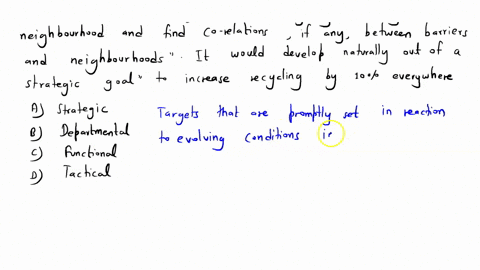 neighbourhood and find co-relations , if any, between barriers
and neighbourhoods". It would develop naturally out of a
strategic goal" to increase recycling by 100% everywhere
A) Strategic
B) Departmental
C) Functional
D) Tactical
Targets that are promptly set in reaction
to evolving conditions is